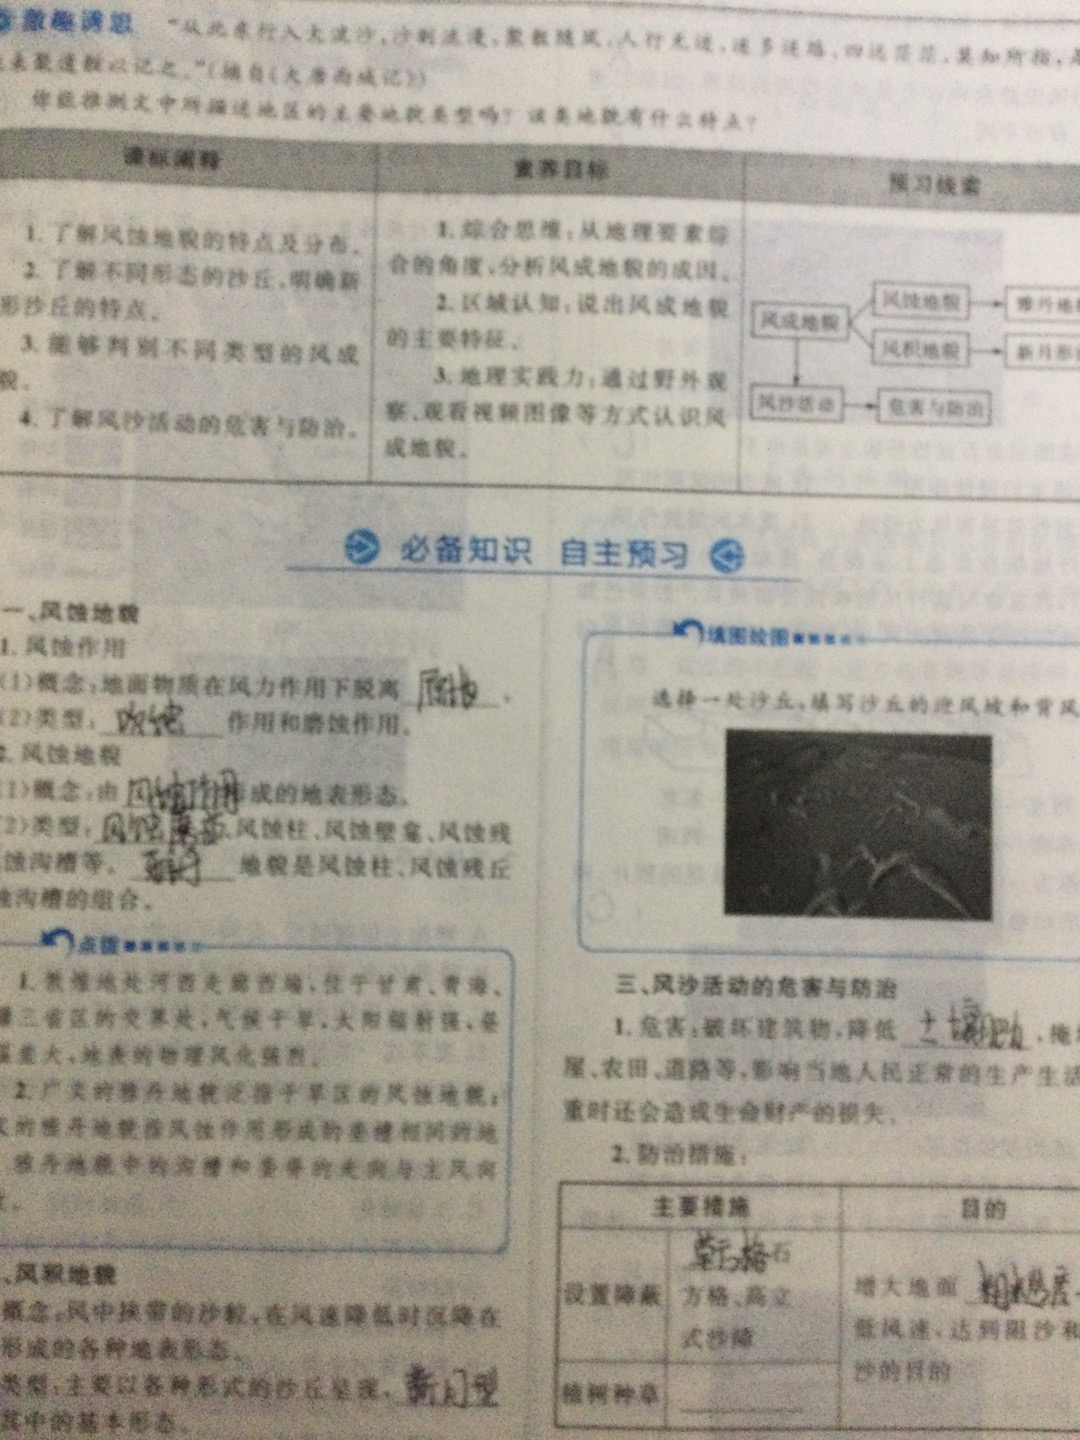 激趣诱思 "从此东行入大流沙,沙则流漫,聚散随风,人行无迹,遂多迷路,四远茫茫,莫知所指,是
来聚遗骸以记之。"(摘自《大唐西域记》)
你能推测文中所描述地区的主要地貌类型吗?该类地貌有什么特点?
课标阐释
1.了解风蚀地貌的特点及分布。
2.了解不同形态的沙丘,明确新
形沙丘的特点。
3.能够判别不同类型的风成
貌。
4.了解风沙活动的危害与防治。
素养目标
1.综合思维:从地理要素综
合的角度,分析风成地貌的成因。
2.区域认知:说出风成地貌
的主要特征。
3.地理实践力:通过野外观
察、观看视频图像等方式认识风
成地貌。
预习线索
风成地貌
风蚀地貌
雅丹地
风积地貌
新月形
风沙活动
危害与防治
必备知识 自主预习
一、风蚀地貌
1.风蚀作用
(1)概念:地面物质在风力作用下脱离 原地 。
(2)类型: 吹蚀 作用和磨蚀作用。
2.风蚀地貌
(1)概念:由 风蚀作用 形成的地表形态。
(2)类型: 风蚀蘑菇 、风蚀柱、风蚀壁龛、风蚀残
蚀沟槽等。 雅丹 地貌是风蚀柱、风蚀残丘
蚀沟槽的组合。
点拨
1.敦煌地处河西走廊西端,位于甘肃、青海、
疆三省区的交界处,气候干旱,太阳辐射强,昼
温差大,地表的物理风化强烈。
2.广义的雅丹地貌泛指干旱区的风蚀地貌;
义的雅丹地貌指风蚀作用形成的垄槽相间的地
雅丹地貌中的沟槽和垄脊的走向与主风向
、风积地貌
概念:风中挟带的沙粒,在风速降低时沉降在
形成的各种地表形态。
类型:主要以各种形式的沙丘呈现, 新月型
其中的基本形态。
填图绘图
选择一处沙丘,填写沙丘的迎风坡和背风
三、风沙活动的危害与防治
1.危害:破坏建筑物,降低 土壤肥力 ,掩
屋、农田、道路等,影响当地人民正常的生产生活
重时还会造成生命财产的损失。
2.防治措施:
主要措施 目的
设置障蔽
草方格 石
方格、高立
式沙障
增大地面 粗糙度
低风速、达到阻沙和
沙的目的
植树种草